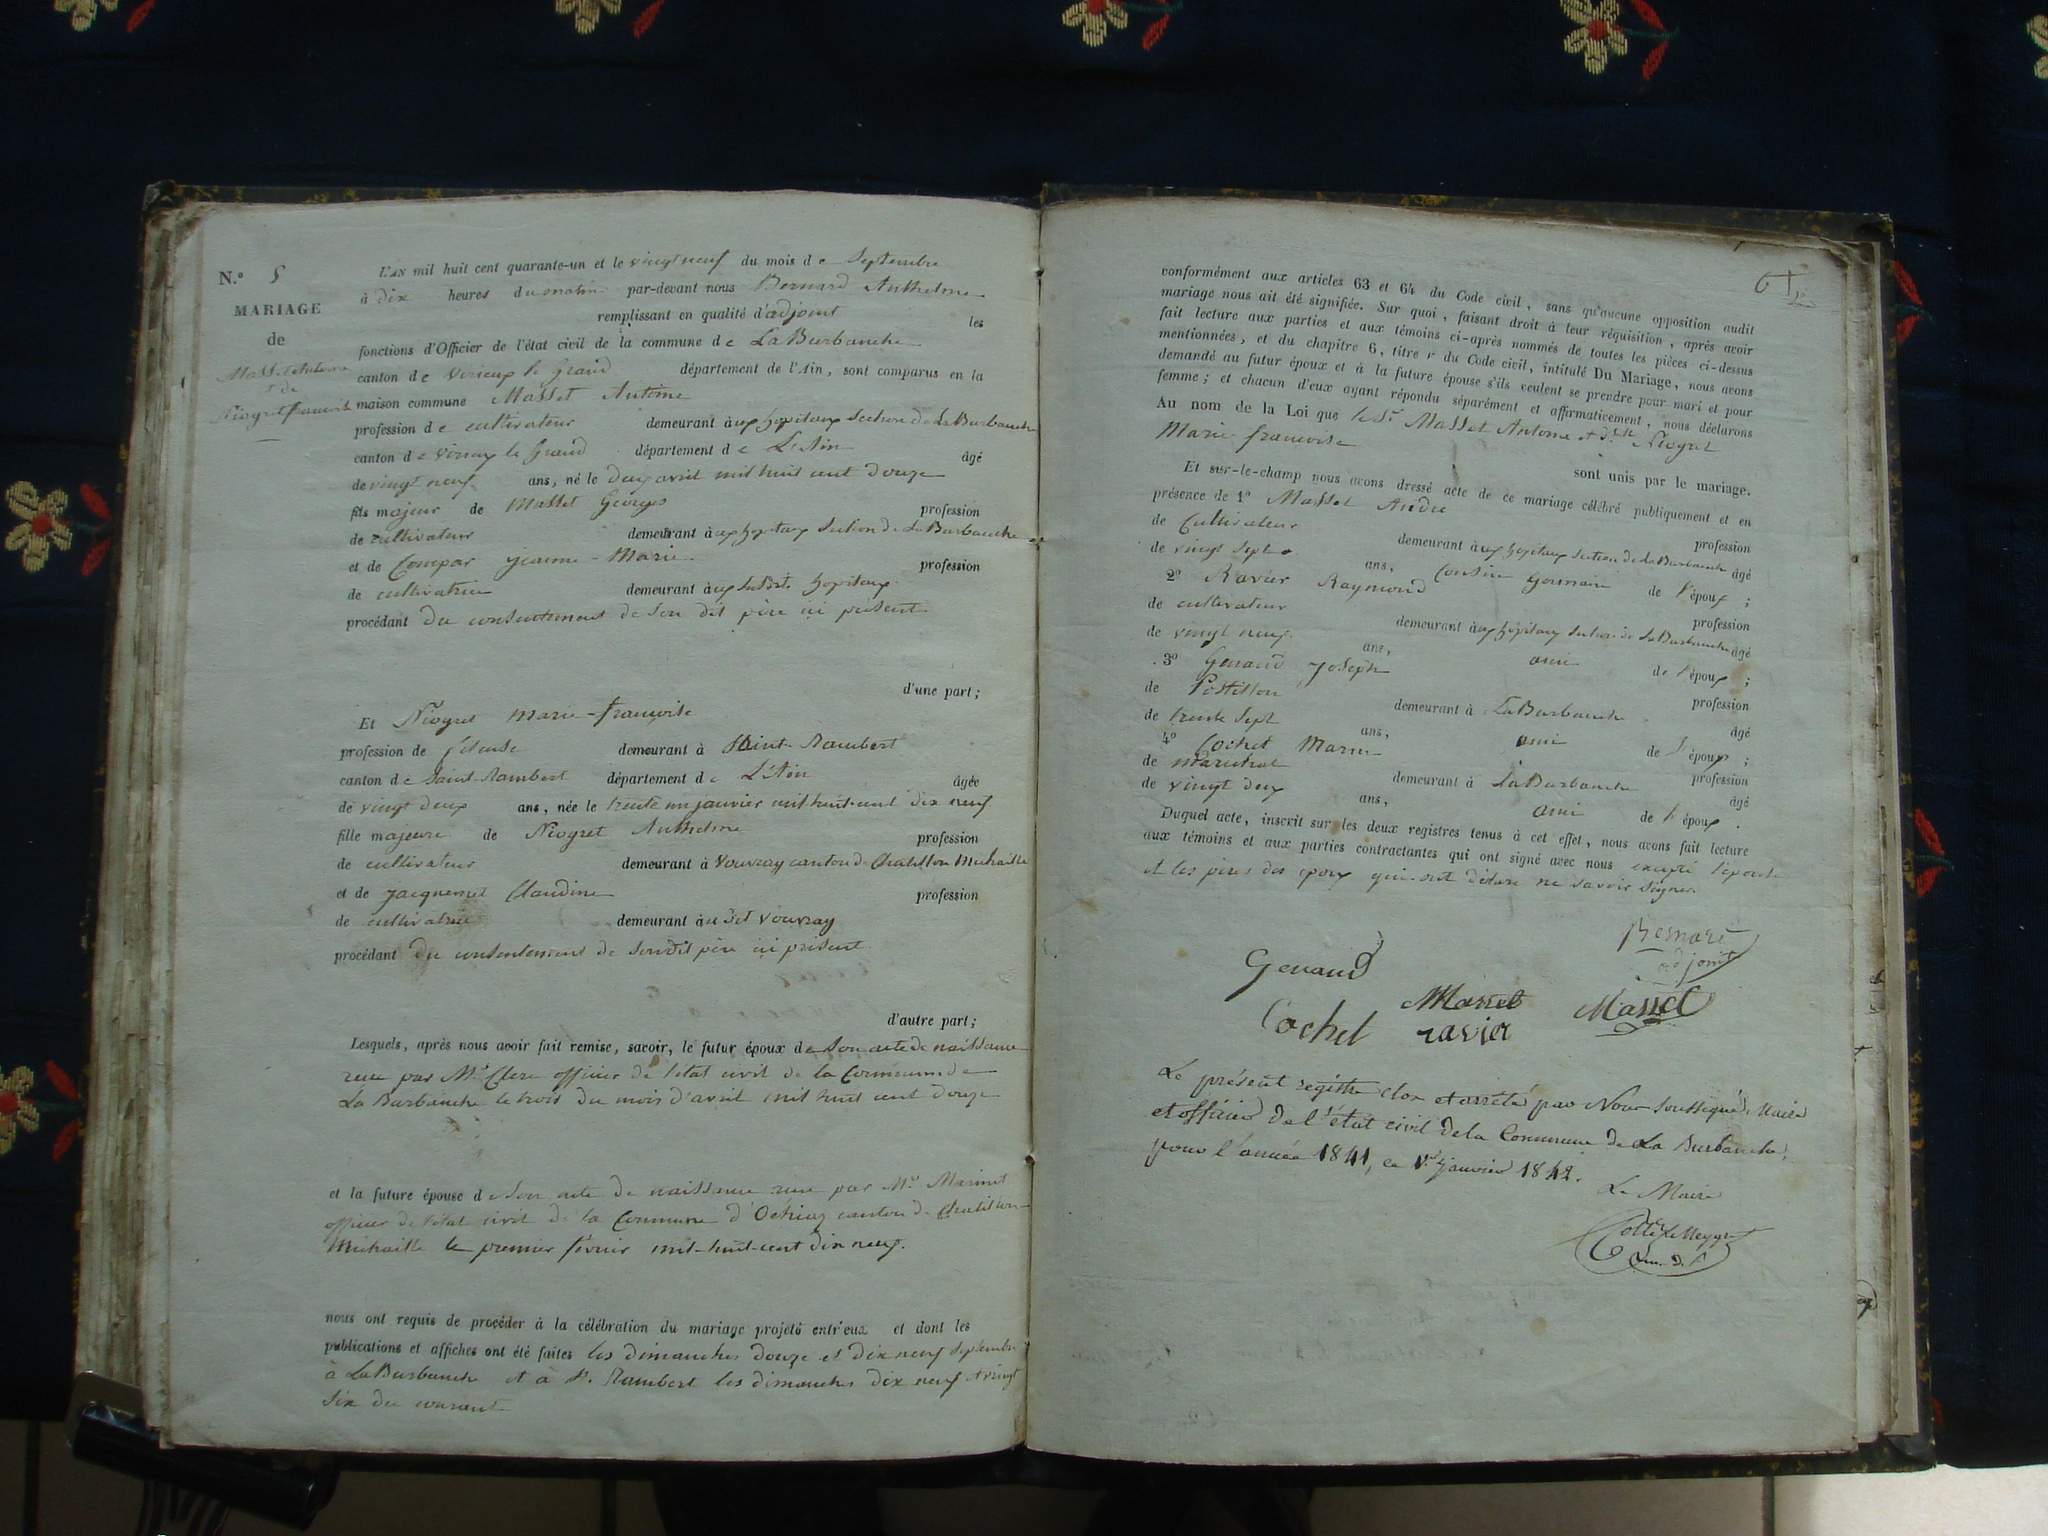 N.° 5
MARIAGE
de
Masset Antoine
et de
Niogret francoise
L'AN mil huit cent quarante-un et le vingt neuf du mois de Septembre
à dix heures du matin par-devant nous Bernard Anthelme
remplissant en qualité d'adjoint les
fonctions d'Officier de l'état civil de la commune de La Burbanche
canton de virieux le Grand département de l'Ain, sont comparus en la
maison commune Masset Antoine
profession de cultivateur demeurant aux hopitaux Section de La Burbanche
canton de virieux le Grand département de L'Ain âgé
de vingt neuf ans, né le deux avril mil huit cent douze
fils majeur de Masset Georges profession
de cultivateur demeurant à aux hopitaux Section de La Burbanche
et de Compar jeanne-Marie profession
de cultivatrice demeurant à aux susdits hopitaux
procédant du consentement de son dit père ici présent
d'une part;
Et Niogret Marie-francoise
profession de fileuse demeurant à Saint-Rambert
canton de Saint-Rambert département de L'Ain âgée
de vingt deux ans, née le trente un janvier mil huit-cent dix neuf
fille majeure de Niogret Anthelme profession
de cultivateur demeurant à Vouvray canton de Chatillon Michaille
et de Jacquemet Claudine profession
de cultivatrice demeurant à u dit Vouvray
procédant du consentement de son dit père ici présent
d'autre part;
Lesquels, après nous avoir fait remise, savoir, le futur époux de son acte de naissance
recu par Mr Clerc officier de l'état civil de la Commune de
La Burbanche le trois du mois d'avril mil huit cent douze
et la future épouse de son acte de naissance recu par Mr Marinet
officier de l'état civil de la Commune d'Ochiaz canton de Chatillon-
Michaille le premier fevrier mil-huit-cent dix neuf.
nous ont requis de procéder à la célébration du mariage projeté entr'eux et dont les
publications et affiches ont été faites les dimanches douze et dix neuf septembre
à La Burbanche et à St. Rambert les dimanches dix neuf et vingt
six du courant
conformément aux articles 63 et 64 du Code civil, sans qu'aucune opposition audit
mariage nous ait été signifiée. Sur quoi, faisant droit à leur réquisition, après avoir
fait lecture aux parties et aux témoins ci-après nommés de toutes les pièces ci-dessus
mentionnées, et du chapitre 6, titre 1er du Code civil, intitulé Du Mariage, nous avons
demandé au futur époux et à la future épouse s'ils veulent se prendre pour mari et pour
femme; et chacun d'eux ayant répondu séparément et affirmativement, nous déclarons
Au nom de la Loi que le Sr Masset Antoine et dlle Niogret
Marie francoise
sont unis par le mariage.
Et sur-le-champ nous avons dressé acte de ce mariage célébré publiquement et en
présence de 1° Masset André profession
de Cultivateur demeurant à aux hopitaux Section de La Burbanche âgé
de vingt sept ans, Cousin Germain de l'époux;
2° Ravier Raymond profession
de cultivateur demeurant à aux hopitaux Section de La Burbanche âgé
de vingt neuf ans, ami de l'époux;
3° Genaud Joseph profession
de Postillon demeurant à La Burbanche âgé
de trente sept ans, ami de l'époux;
4° Cochet Marin profession
de marechal demeurant à La Burbanche âgé
de vingt deux ans, ami de l'époux.
Duquel acte, inscrit sur les deux registres tenus à cet effet, nous avons fait lecture
aux témoins et aux parties contractantes qui ont signé avec nous excepté l'épouse
et les pères des époux qui ont déclaré ne savoir signer
Bernard
adjoint
Genaud
Masset Masset
Cochet ravier
Le présent registre clos et arrêté par Nous Soussigné, Maire
et officier de l'état civil de la Commune de La Burbanche,
pour l'année 1841, ce 1er janvier 1842.
Le Maire